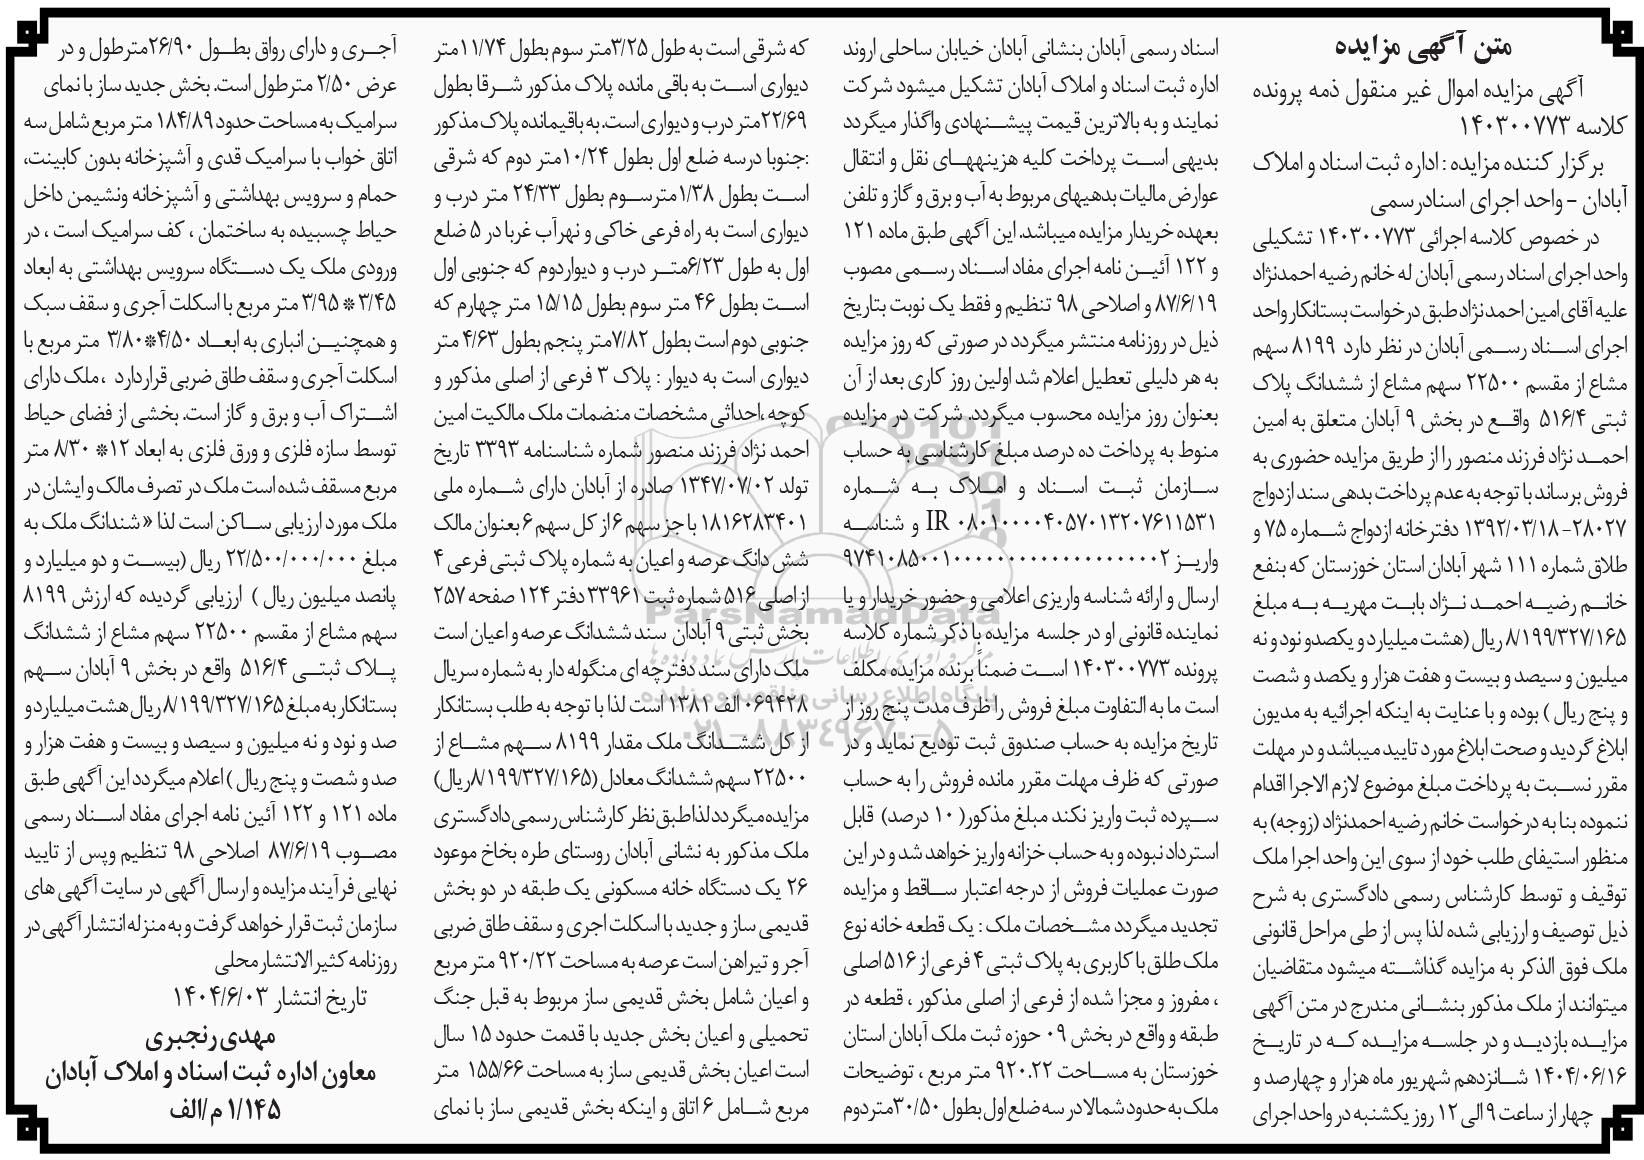 متن آگهی مزایده
آگهی مزایده اموال غیر منقول ذمه پرونده
کلاسه ۱۴۰۳۰۰۷۷۳
برگزار کننده مزایده : اداره ثبت اسناد و املاک
آبادان – واحد اجرای اسنادرسمی
در خصوص کلاسه اجرائی ۱۴۰۳۰۰۷۷۳ تشکیلی
واحد اجرای اسناد رسمی آبادان له خانم رضیه احمدنژاد
علیه آقای امین احمدنژاد طبق درخواست بستانکار واحد
اجرای اسناد رسمی آبادان در نظر دارد ۸۱۹۹ سهم
مشاع از مقسم ۲۲۵۰۰ سهم مشاع از ششدانگ پلاک
ثبتی ۵۱۶/۴ واقع در بخش ۹ آبادان متعلق به امین
احمد نژاد فرزند منصور را از طریق مزایده حضوری به
فروش برساند با توجه به عدم پرداخت بدهی سند ازدواج
۲۸۰۲۷- ۱۳۹۲/۰۳/۱۸ دفترخانه ازدواج شماره ۷۵ و
طلاق شماره ۱۱۱ شهر آبادان استان خوزستان که بنفع
خانم رضیه احمد نژاد بابت مهریه به مبلغ
۸/۱۹۹/۳۲۷/۱۶۵ ریال (هشت میلیارد و یکصدو نود و نه
میلیون و سیصد و بیست و هفت هزار و یکصد و شصت
و پنج ریال ) بوده و با عنایت به اینکه اجرائیه به مدیون
ابلاغ گردید و صحت ابلاغ مورد تایید میباشد و در مهلت
مقرر نسبت به پرداخت مبلغ موضوع لازم الاجرا اقدام
ننموده بنا به درخواست خانم رضیه احمدنژاد (زوجه) به
منظور استیفای طلب خود از سوی این واحد اجرا ملک
توقیف و توسط کارشناس رسمی دادگستری به شرح
ذیل توصیف و ارزیابی شده لذا پس از طی مراحل قانونی
ملک فوق الذکر به مزایده گذاشته میشود متقاضیان
میتوانند از ملک مذکور بنشانی مندرج در متن آگهی
مزایده بازدید و در جلسه مزایده که در تاریخ
۱۴۰۴/۰۶/۱۶ شانزدهم شهریور ماه هزار و چهارصد و
چهار از ساعت ۹ الی ۱۲ روز یکشنبه در واحد اجرای
اسناد رسمی آبادان بنشانی آبادان خیابان ساحلی اروند
اداره ثبت اسناد و املاک آبادان تشکیل میشود شرکت
نمایند و به بالاترین قیمت پیشنهادی واگذار میگردد
بدیهی است پرداخت کلیه هزینههای نقل و انتقال
عوارض مالیات بدهیهای مربوط به آب و برق و گاز و تلفن
بعهده خریدار مزایده میباشد. این آگهی طبق ماده ۱۲۱
و ۱۲۲ آئین نامه اجرای مفاد اسناد رسمی مصوب
۸۷/۶/۱۹ و اصلاحی ۹۸ تنظیم و فقط یک نوبت بتاریخ
ذیل در روزنامه منتشر میگردد در صورتی که روز مزایده
به هر دلیلی تعطیل اعلام شد اولین روز کاری بعد از آن
بعنوان روز مزایده محسوب میگردد. شرکت در مزایده
منوط به پرداخت ده درصد مبلغ کارشناسی به حساب
سازمان ثبت اسناد و املاک به شماره
IR ۰۸۰۱۰۰۰۰۴۰۵۷۰۱۳۲۰۷۶۱۱۵۳۱ و شناسه
واریز
ارسال و ارائه شناسه واریزی اعلامی و حضور خریدار و یا
نماینده قانونی او در جلسه مزایده با ذکر شماره کلاسه
پرونده ۱۴۰۳۰۰۷۷۳ است ضمناً برنده مزایده مکلف
است ما به التفاوت مبلغ فروش را ظرف مدت پنج روز از
تاریخ مزایده به حساب صندوق ثبت تودیع نماید و در
صورتی که ظرف مهلت مقرر مانده فروش را به حساب
سپرده ثبت واریز نکند مبلغ مذکور( ۱۰ درصد) قابل
استرداد نبوده و به حساب خزانه واریز خواهد شد و در این
صورت عملیات فروش از درجه اعتبار ساقط و مزایده
تجدید میگردد مشخصات ملک : یک قطعه خانه نوع
ملک طلق با کاربری به پلاک ثبتی ۴ فرعی از ۵۱۶ اصلی
، مفروز و مجزا شده از فرعی از اصلی مذکور ، قطعه در
طبقه و واقع در بخش ۰۹ حوزه ثبت ملک آبادان استان
خوزستان به مساحت ۹۲۰.۲۲ متر مربع ، توضیحات
ملک به حدود شمالا در سه ضلع اول بطول ۳۰/۵۰متردوم
که شرقی است به طول ۳/۲۵متر سوم بطول ۱۱/۷۴متر
دیواری است به باقی مانده پلاک مذکور شرقا بطول
۲۲/۶۹متر درب و دیواری است. به باقیمانده پلاک مذکور
:جنوبا درسه ضلع اول بطول ۱۰/۲۴متر دوم که شرقی
است بطول ۱/۳۸مترسوم بطول ۲۴/۳۳ متر درب و
دیواری است به راه فرعی خاکی و نهرآب غربا در ۵ ضلع
اول به طول ۶/۲۳متر درب و دیواردوم که جنوبی اول
است بطول ۴۶ متر سوم بطول ۱۵/۱۵ متر چهارم که
جنوبی دوم است بطول ۷/۸۲متر پنجم بطول ۴/۶۳ متر
دیواری است به دیوار : پلاک ۳ فرعی از اصلی مذکور و
کوچه ،احداثی مشخصات منضمات ملک مالکیت امین
احمد نژاد فرزند منصور شماره شناسنامه ۳۳۹۳ تاریخ
تولد ۱۳۴۷/۰۷/۰۲ صادره از آبادان دارای شماره ملی
۱۸۱۶۲۸۳۴۰۱ با جز سهم ۶ از کل سهم ۶ بعنوان مالک
شش دانگ عرصه و اعیان به شماره پلاک ثبتی فرعی ۴
از اصلی ۵۱۶ شماره ثبت ۳۳۹۶۱ دفتر ۱۲۴ صفحه ۲۵۷
بخش ثبتی ۹ آبادان سند ششدانگ عرصه و اعیان است
ملک دارای سند دفترچه ای منگوله دار به شماره سریال
۰۶۹۴۲۸ الف ۱۳۸۱ است لذا با توجه به طلب بستانکار
از کل ششدانگ ملک مقدار ۸۱۹۹ سهم مشاع از
۲۲۵۰۰ سهم ششدانگ معادل (۸/۱۹۹/۳۲۷/۱۶۵ریال)
مزایده میگردد لذا طبق نظر کارشناس رسمی دادگستری
ملک مذکور به نشانی آبادان روستای طره بخاخ موعود
۲۶ یک دستگاه خانه مسکونی یک طبقه در دو بخش
قدیمی ساز و جدید با اسکلت اجری و سقف طاق ضربی
آجر و تیراهن است عرصه به مساحت ۹۲۰/۲۲ متر مربع
و اعیان شامل بخش قدیمی ساز مربوط به قبل جنگ
تحمیلی و اعیان بخش جدید با قدمت حدود ۱۵ سال
است اعیان بخش قدیمی ساز به مساحت ۱۵۵/۶۶ متر
مربع شامل ۶ اتاق و اینکه بخش قدیمی ساز با نمای
آجری و دارای رواق بطول ۲۶/۹۰مترطول و در
عرض ۲/۵۰ مترطول است. بخش جدید ساز با نمای
سرامیک به مساحت حدود ۱۸۴/۸۹ متر مربع شامل سه
اتاق خواب با سرامیک قدی و آشپزخانه بدون کابینت،
حمام و سرویس بهداشتی و آشپزخانه ونشیمن داخل
حیاط چسبیده به ساختمان ، کف سرامیک است ، در
ورودی ملک یک دستگاه سرویس بهداشتی به ابعاد
۳/۴۵ * ۳/۹۵ متر مربع با اسکلت آجری و سقف سبک
و همچنین انباری به ابعاد ۴/۵۰*۳/۸۰ متر مربع با
اسکلت آجری و سقف طاق ضربی قراردارد ، ملک دارای
اشتراک آب و برق و گاز است. بخشی از فضای حیاط
توسط سازه فلزی و ورق فلزی به ابعاد ۱۲* ۸/۳۰ متر
مربع مسقف شده است ملک در تصرف مالک و ایشان در
ملک مورد ارزیابی ساکن است لذا « شندانگ ملک به
مبلغ ۲۲/۵۰۰/۰۰۰/۰۰۰ ریال (بیست و دو میلیارد و
پانصد میلیون ریال ) ارزیابی گردیده که ارزش ۸۱۹۹
سهم مشاع از مقسم ۲۲۵۰۰ سهم مشاع از ششدانگ
پلاک ثبتی ۵۱۶/۴ واقع در بخش ۹ آبادان سهم
بستانکار به مبلغ ۸/۱۹۹/۳۲۷/۱۶۵ ریال هشت میلیارد و
صد و نود و نه میلیون و سیصد و بیست و هفت هزار و
صد و شصت و پنج ریال ) اعلام میگردد این آگهی طبق
ماده ۱۲۱ و ۱۲۲ آئین نامه اجرای مفاد اسناد رسمی
مصوب ۸۷/۶/۱۹ اصلاحی ۹۸ تنظیم وپس از تایید
نهایی فرآیند مزایده و ارسال آگهی در سایت آگهی های
سازمان ثبت قرار خواهد گرفت و به منزله انتشار آگهی در
روزنامه کثیر الانتشار محلی
تاریخ انتشار ۱۴۰۴/۶/۰۳
مهدی رنجبری
معاون اداره ثبت اسناد و املاک آبادان
۱/۱۴۵ م/الف
ParsNamadData
پایگاه اطلاع رسانی مناقصه و مزایده
۰۲۱-۸۸۳۴۹۶۷۰-۵